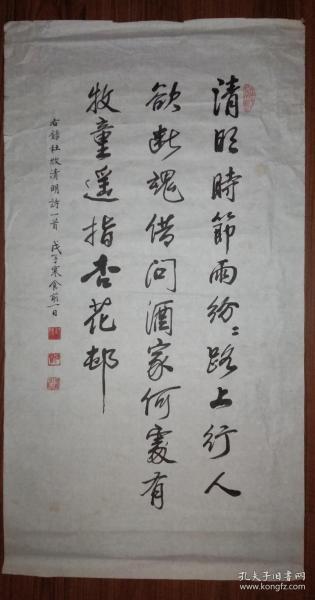 清明時節雨紛〻路上行人
欲斷魂借问酒家何處有
牧童遥指杏花邨
右錄杜牧清明詩一首 戊子寒食前一日
孔夫子旧书网
www.kongfz.com